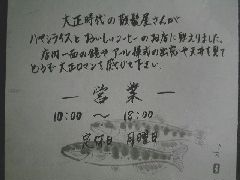 大正時代の散髪屋さんが
ハヤシライスとおいしいコーヒーのお店に甦えりました。
店内一面の鏡やアール様式の出窓や天井を見て
どうぞ大正ロマンを感じて下さい。
― 営業 ―
10:00 ～ 18:00
定休日 月曜日